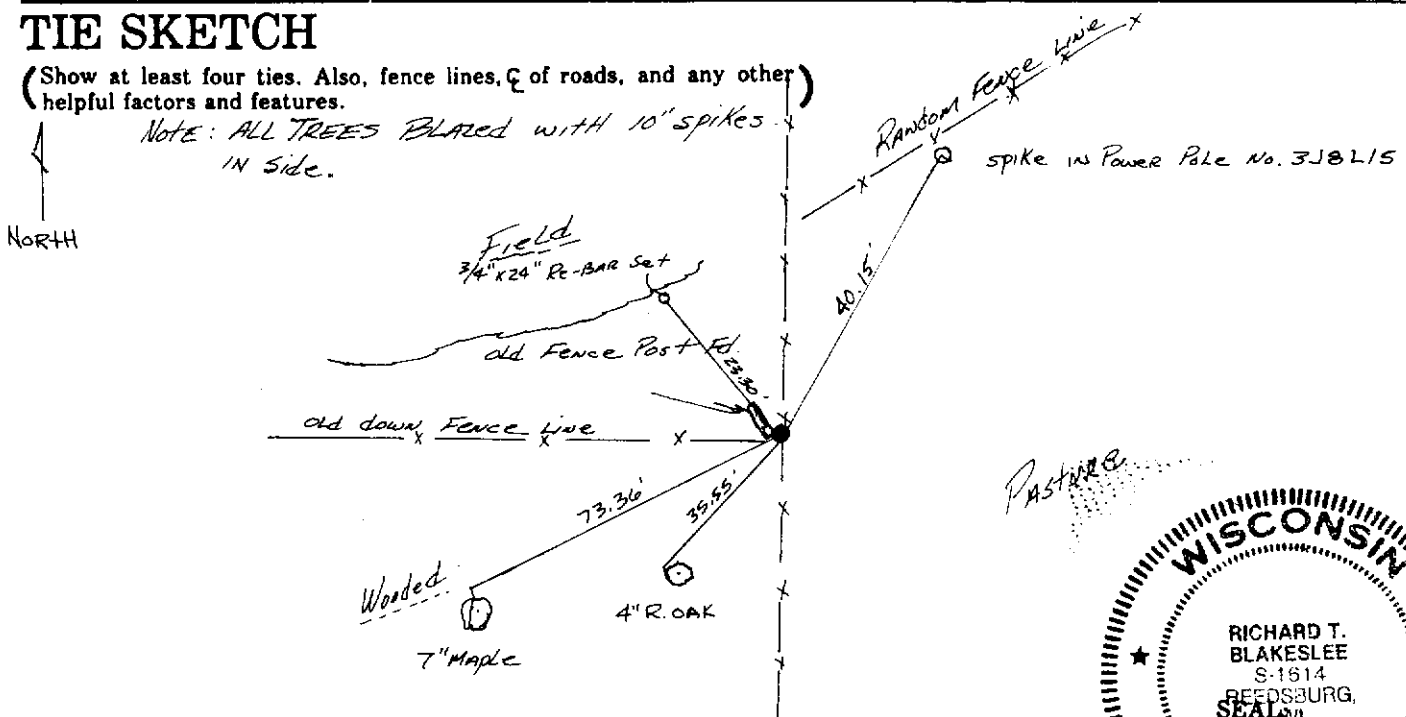 TIE SKETCH
(Show at least four ties. Also, fence lines, ℄ of roads, and any other
helpful factors and features.)
Note: ALL TREES BLAZED with 10" spikes
IN Side.
NORTH
RANDOM Fence Line
spike IN Power Pole No. 3J8L15
Field
3/4"x24" Re-BAR Set
40.15'
old Fence Post Fd.
23.30'
old down Fence Line
73.36'
35.55'
PASTURE
Wooded
7" MAPLE
4" R. OAK
WISCONSIN
RICHARD T.
BLAKESLEE
S-1614
REEDSBURG,
SEAL